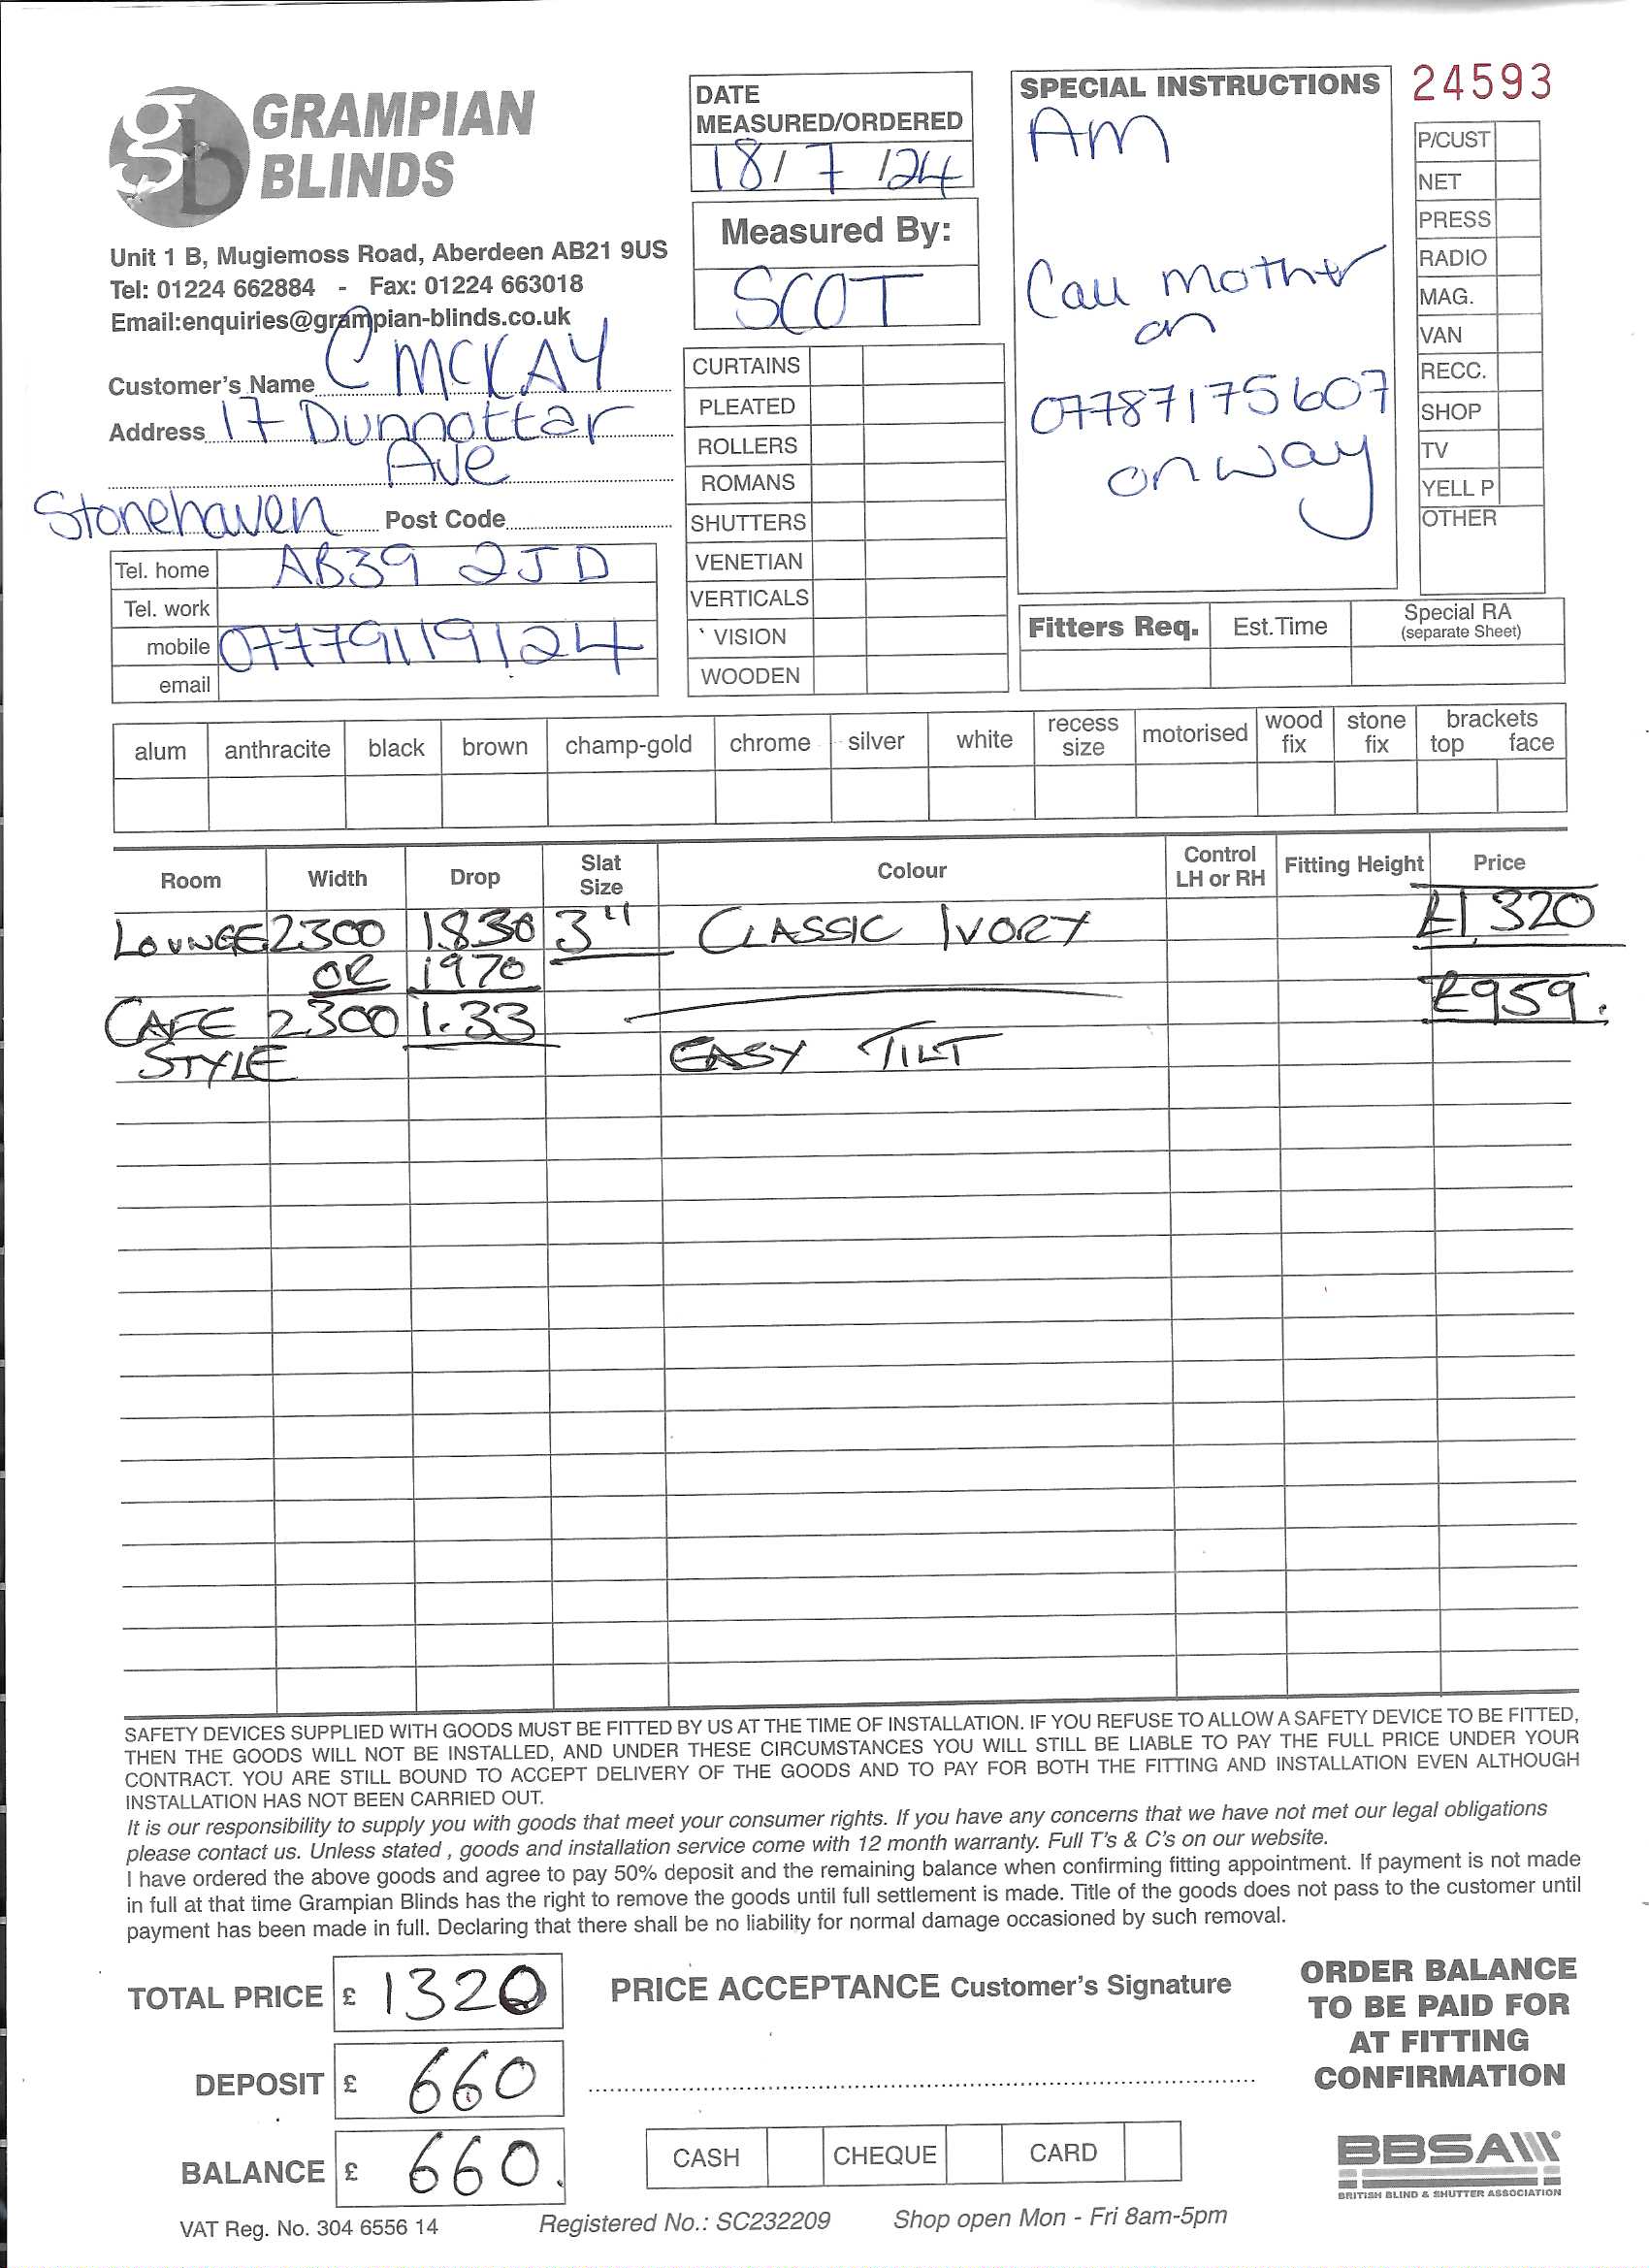 GRAMPIAN
BLINDS
Unit 1 B, Mugiemoss Road, Aberdeen AB21 9US
Tel: 01224 662884 - Fax: 01224 663018
Email:enquiries@grampian-blinds.co.uk
Customer's Name C MCKAY
Address 17 Dunnottar
Ave
Stonehaven Post Code
Tel. home AB39 2JD
Tel. work
mobile 07779119124
email
DATE
MEASURED/ORDERED
18/7/24
Measured By:
SCOT
CURTAINS
PLEATED
ROLLERS
ROMANS
SHUTTERS
VENETIAN
VERTICALS
VISION
WOODEN
SPECIAL INSTRUCTIONS
AM
Call mother
on
07787175607
on way
24593
P/CUST
NET
PRESS
RADIO
MAG.
VAN
RECC.
SHOP
TV
YELL P
OTHER
Fitters Req. Est.Time Special RA
(separate Sheet)
alum anthracite black brown champ-gold chrome silver white recess size motorised wood fix stone fix brackets top face
Room Width Drop Slat Size Colour Control LH or RH Fitting Height Price
LOUNGE 2300 1830 3" CLASSIC IVORY £1,320
OR 1970
CAFE 2300 1.33 £959.
STYLE EASY TILT
SAFETY DEVICES SUPPLIED WITH GOODS MUST BE FITTED BY US AT THE TIME OF INSTALLATION. IF YOU REFUSE TO ALLOW A SAFETY DEVICE TO BE FITTED,
THEN THE GOODS WILL NOT BE INSTALLED, AND UNDER THESE CIRCUMSTANCES YOU WILL STILL BE LIABLE TO PAY THE FULL PRICE UNDER YOUR
CONTRACT. YOU ARE STILL BOUND TO ACCEPT DELIVERY OF THE GOODS AND TO PAY FOR BOTH THE FITTING AND INSTALLATION EVEN ALTHOUGH
INSTALLATION HAS NOT BEEN CARRIED OUT.
It is our responsibility to supply you with goods that meet your consumer rights. If you have any concerns that we have not met our legal obligations
please contact us. Unless stated , goods and installation service come with 12 month warranty. Full T's & C's on our website.
I have ordered the above goods and agree to pay 50% deposit and the remaining balance when confirming fitting appointment. If payment is not made
in full at that time Grampian Blinds has the right to remove the goods until full settlement is made. Title of the goods does not pass to the customer until
payment has been made in full. Declaring that there shall be no liability for normal damage occasioned by such removal.
TOTAL PRICE £ 1320
DEPOSIT £ 660
BALANCE £ 660.
PRICE ACCEPTANCE Customer's Signature
CASH CHEQUE CARD
ORDER BALANCE
TO BE PAID FOR
AT FITTING
CONFIRMATION
BBSA
BRITISH BLIND & SHUTTER ASSOCIATION
VAT Reg. No. 304 6556 14 Registered No.: SC232209 Shop open Mon - Fri 8am-5pm